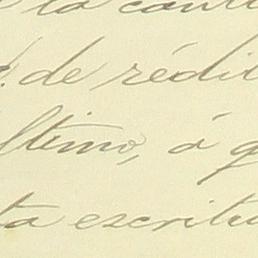 la cant
de rédit
ltimo, á q
ta escritu